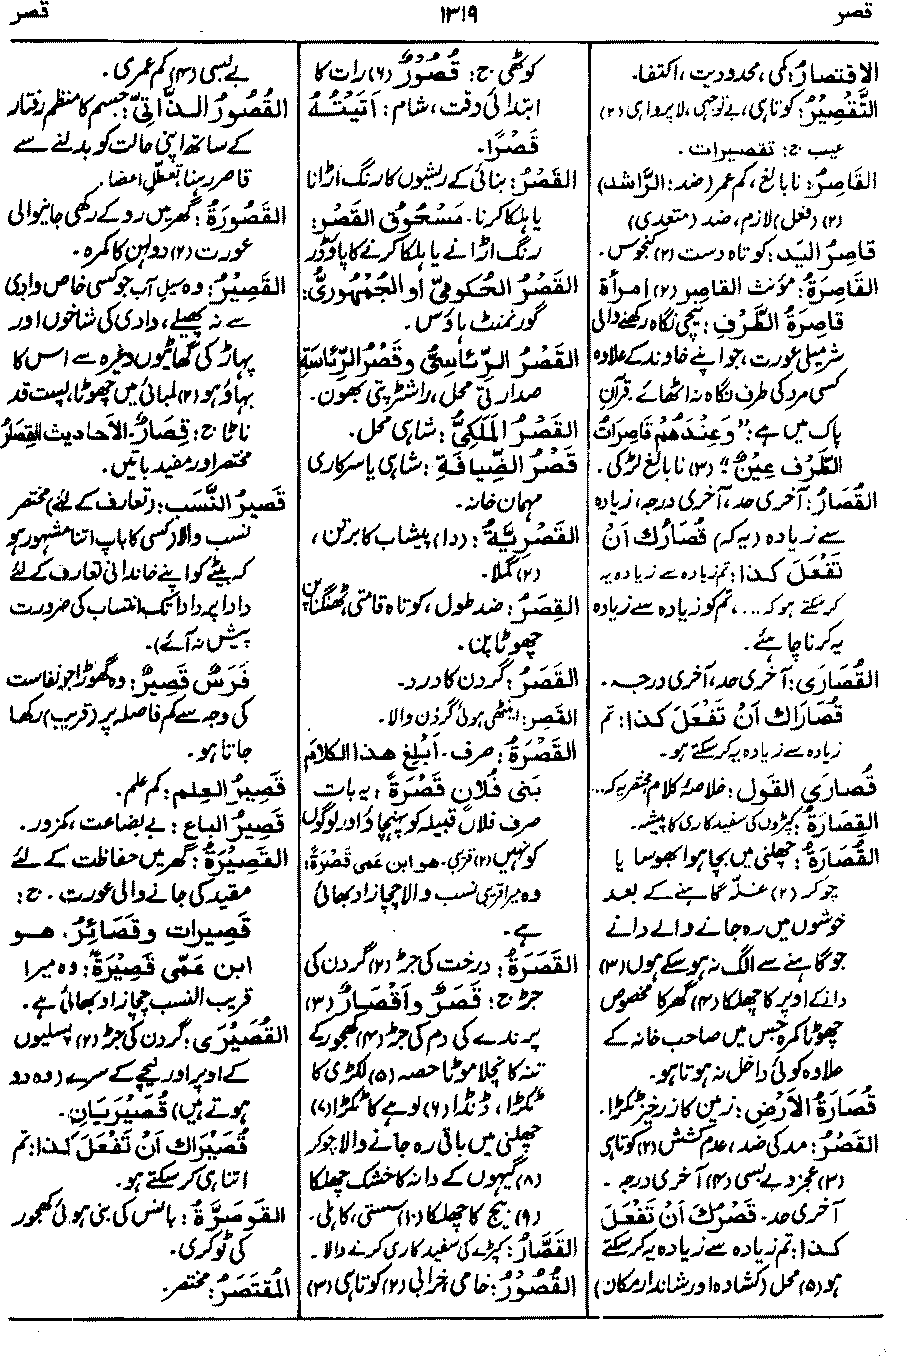 قصر ۱۳۱۹ قصر
الاِقتصارُ: کمی، محدودیت، اکتفا۔
التَّقصِیرُ: کوتاہی، بے توجہی، لاپرواہی (۲)
عیب ج: تقصیرات۔
القَاصِرُ: نابالغ، کم عمر (ضد: الرَّاشد)
(۲) (فعل) لازم، ضد (متعدی)
قاصِرُ الیَد: کوتاہ دست (۲) کنجوس۔
القَاصِرَةُ: مؤنث القاصِر (۲) امرأة
قاصِرَةُ الطَّرْفِ: نیچی نگاہ رکھنے والی
شرمیلی عورت، جو اپنے خاوند کے علاوہ
کسی مرد کی طرف نگاہ نہ اٹھائے۔ قرآنِ
پاک میں ہے: "وَعِنْدَهُمْ قَاصِرَاتُ
الطَّرْفِ عِیْنٌ" (۳) نابالغ لڑکی۔
القُصَارُ: آخری حد، آخری درجہ، زیادہ
سے زیادہ (یہ کہ) قُصَارُكَ اَنْ
تَفْعَلَ كَذا: تم زیادہ سے زیادہ یہ
کر سکتے ہو کہ ....، تم کو زیادہ سے زیادہ
یہ کرنا چاہئے۔
القُصَارَی: آخری حد، آخری درجہ۔
قُصَارَاكَ اَنْ تَفْعَلَ كَذا: تم
زیادہ سے زیادہ یہ کر سکتے ہو۔
قُصارَی القَول: خلاصۂ کلام مختصر یہ کہ...
القِصارَةُ: کپڑوں کی سفید کاری کا پیشہ۔
القُصَارَةُ: چھلنی میں بچا ہوا بھوسا یا
چوکر (۲) غلہ گاہنے کے بعد
خوشوں میں رہ جانے والے دانے
جو گاہنے سے الگ نہ ہو سکے ہوں (۳)
دانے کے اوپر کا چھلکا (۴) گھر کا مخصوص
چھوٹا کمرہ جس میں صاحب خانہ کے
علاوہ کوئی داخل نہ ہوتا ہو۔
قُصَارَةُ الأرضِ: زمین کا زرخیز ٹکڑا۔
القَصْرُ: مد کی ضد، عدم کشش (۲) کوتاہی
(۳) عجز و بے بسی (۴) آخری درجہ۔
آخری حد۔ قَصْرُكَ اَنْ تَفْعَلَ
كَذا: تم زیادہ سے زیادہ یہ کر سکتے
ہو (۵) محل (کشادہ اور شاندار مکان)
کوٹھی ج: قُصُورٌ (۶) رات کا
ابتدائی وقت، شام: اَتَیْتُهُ
قَصْرًا۔
القَصْرُ: بنائی کے ریشوں کا رنگ اڑانا
یا ہلکا کرنا۔ مَسْحُوقُ القَصْرِ:
رنگ اڑانے یا ہلکا کرنے کا پاؤڈر
القَصْرُ الحُكومِیُّ اَو الجُمْهُورِیُّ:
گورنمنٹ ہاؤس۔
القَصْرُ الرِّئاسِیُّ وقَصْرُ الرِّئاسَةِ
صدارتی محل، راشٹرپتی بھون۔
القَصْرُ المَلَكِیُّ: شاہی محل۔
قَصْرُ الضِّیافَةِ: شاہی یا سرکاری
مہمان خانہ۔
القَصْرِیَّةُ: (دا) پیشاب کا برتن،
(۲) گملا۔
القِصَرُ: ضد طول، کوتاہ قامتی، ٹھنگناپن
چھوٹاپن۔
القَصَرُ: گردن کا درد۔
القَصِر: اینٹھی ہوئی گردن والا۔
القَصْرَةُ: صرف۔ اَبْلِغْ هذا الكَلامَ
بَنی فُلانٍ قَصْرَةً: یہ بات
صرف فلاں قبیلہ کو پہنچادو اور لوگوں
کو نہیں (۲) قربی۔ هو ابن عمی قَصْرَةً:
وہ میرا قریبی نسب والا چچا زاد بھائی
ہے۔
القَصَرَةُ: درخت کی جڑ (۲) گردن کی
جڑ ج: قَصَرٌ واَقْصَارٌ (۳)
پرندے کی دم کی جڑ (۴) کھجور کے
تنہ کا نچلا موٹا حصہ (۵) لکڑی کا
ٹکڑا، ڈنڈا (۶) لوہے کا ٹکڑا (۷)
چھلنی میں باقی رہ جانے والا چوکر
(۸) گیہوں کے دانہ کا خشک چھلکا
(۹) بیج کا چھلکا (۱۰) سستی، کاہلی۔
القَصَّارُ: کپڑے کی سفید کاری کرنے والا۔
القُصُورُ: خامی، خرابی (۲) کوتاہی (۳)
بے بسی (۴) کم عمری۔
القُصُورُ الذَّاتِیُّ: جسم کا منظم رفتار
کے ساتھ اپنی حالت کو بدلنے سے
قاصر رہنا، تعطلِ اعضا۔
القَصُورَةُ: گھر میں روکے رکھی جانیوالی
عورت (۲) دولہن کا کمرہ۔
القَصِیْرُ: وہ سیل آب جو کسی خاص وادی
سے نہ پھیلے، وادی کی شاخوں اور
پہاڑ کی گھاٹیوں وغیرہ سے اس کا
بہاؤ ہو (۲) لمبائی میں چھوٹا، پست قد
ناٹا ج: قِصَارٌ۔ الأحادیث القِصَارُ
مختصر اور مفید باتیں۔
قَصِیرُ النَّسَبِ: (تعارف کے لئے) مختصر
نسب والا (کسی کا باپ اتنا مشہور ہو
کہ بیٹے کو اپنے خاندانی تعارف کے لئے
دادا پردادا تک انتساب کی ضرورت
پیش نہ آئے)۔
فَرَسٌ قَصِیْرٌ: وہ گھوڑا جو نفاست
کی وجہ سے کم فاصلہ پر (قریب) رکھا
جاتا ہو۔
قَصِیرُ العِلم: کم علم۔
قَصِیرُ الباع: بے بضاعت، کمزور۔
القَصِیْرَةُ: گھر میں حفاظت کے لئے
مقید کی جانے والی عورت۔ ج:
قَصِیرات وقَصَائِرُ، هو
ابن عَمّی قَصِیْرَةً: وہ میرا
قریب النسب چچا زاد بھائی ہے۔
القُصَیْرَی: گردن کی جڑ (۲) پسلیوں
کے اوپر اور نیچے کے سرے (وہ دو
ہوتے ہیں) قُصَیْرَیَانِ۔
قُصَیْرَاكَ اَنْ تَفْعَلَ كَذا: تم
اتنا ہی کر سکتے ہو۔
القَوصَرَّةُ: بانس کی بنی ہوئی کھجور
کی ٹوکری۔
المُقْتَصَرُ: مختصر۔